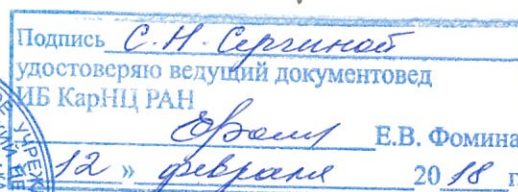 Подпись С.Н. Сергиной
удостоверяю ведущий документовед
ИБ КарНЦ РАН
Е.В. Фомина
12 » февраля 20 18 г